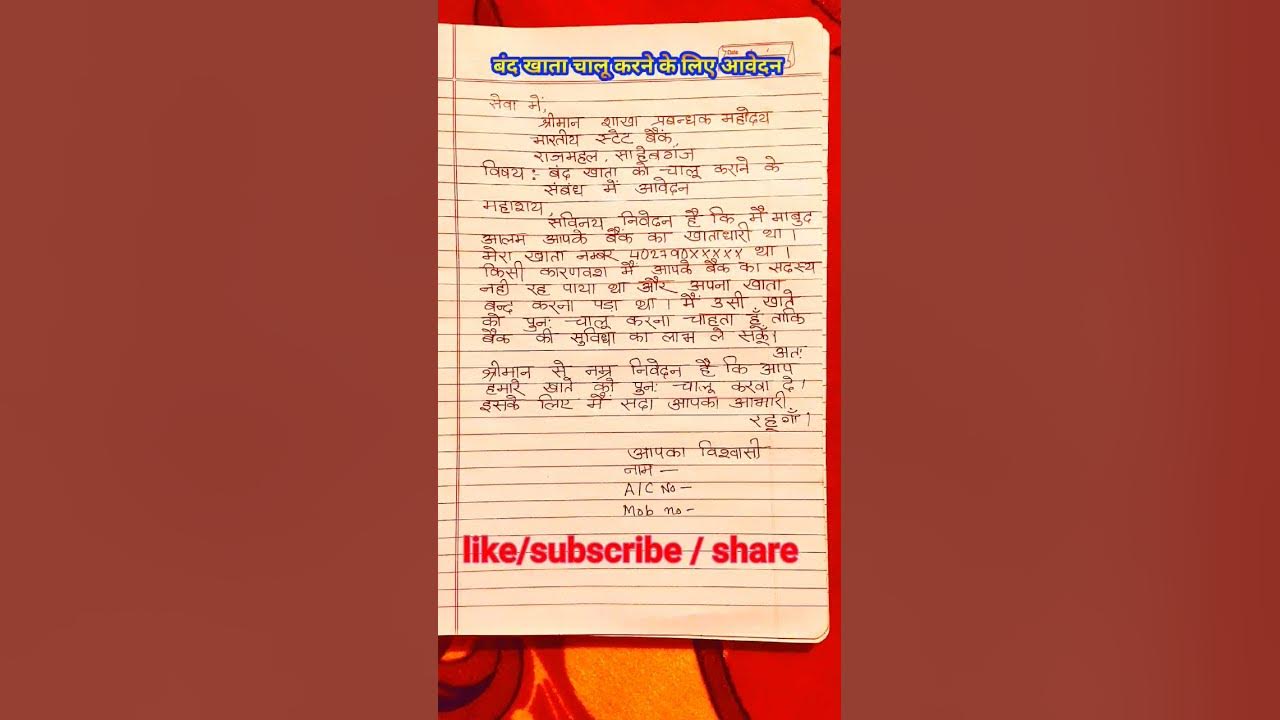 Date
बंद खाता चालू करने के लिए आवेदन
सेवा में,
श्रीमान शाखा प्रबन्धक महोदय
भारतीय स्टेट बैंक,
राजमहल, साहेबगंज
विषय :- बंद खाता को चालू कराने के
संबंध में आवेदन
महाशय,
सविनय निवेदन है कि मैं माबुद
आलम आपके बैंक का खाताधारी था।
मेरा खाता नम्बर 402790XXXXX था।
किसी कारणवश मैं आपके बैंक का सदस्य
नही रह पाया था और अपना खाता
बन्द करना पड़ा था। मैं उसी खाते
को पुनः चालू करना चाहता हूँ ताकि
बैंक की सुविधा का लाभ ले सकूँ।
अतः
श्रीमान से नम्र निवेदन है कि आप
हमारे खाते को पुनः चालू करवा दे।
इसके लिए मैं सदा आपका आभारी
रहूगाँ।
आपका विश्वासी
नाम —
A/C No -
Mob no -
like/subscribe / share